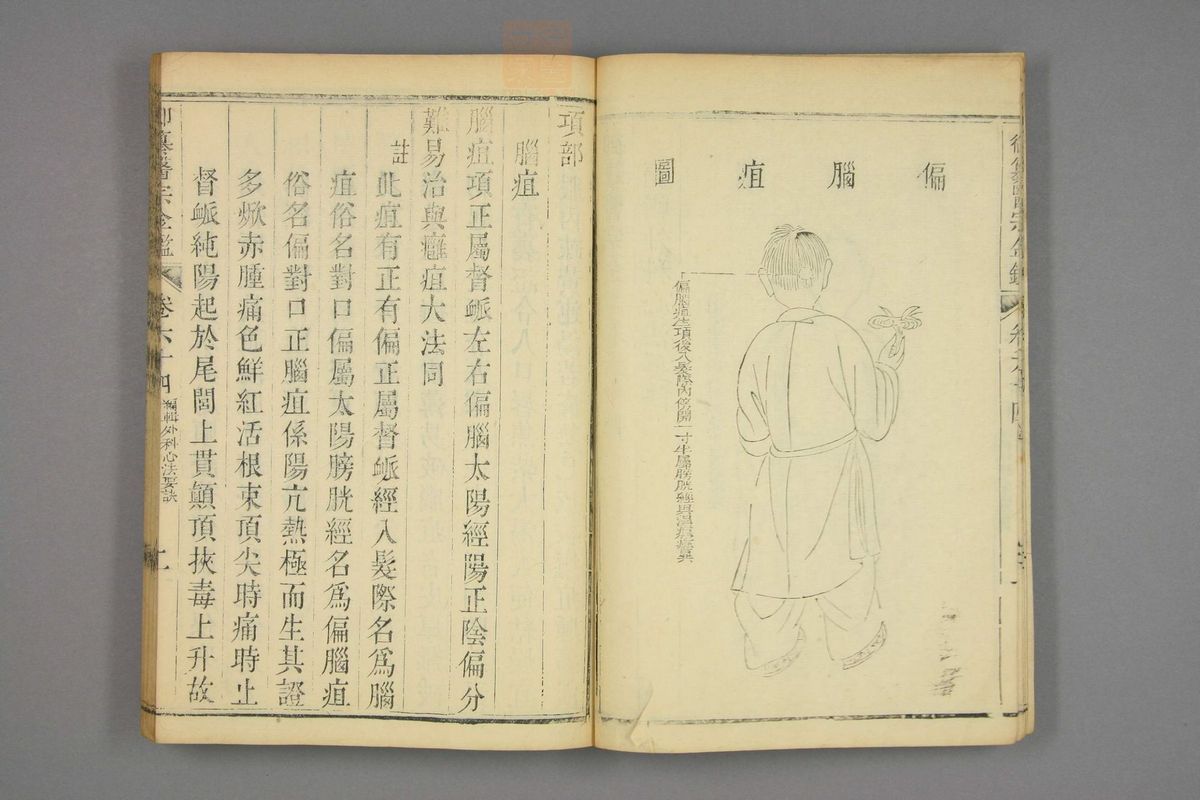 偏腦疽圖
偏腦疽生項後入髮際內傍開一寸半屬膀胱經
項部
腦疽
腦疽項正屬督脈左右偏腦太陽經陽正陰偏分
難易治與癰疽大法同
註此疽有正有偏正屬督脈經入髮際名爲腦
疽俗名對口偏屬太陽膀胱經名爲偏腦疽
俗名偏對口正腦疽係陽亢熱極而生其證
多焮赤腫痛色鮮紅活根束頂尖時痛時止
督脈純陽起於尾閭上貫顛頂挾毒上升故
御纂醫宗金鑑 卷六十四 編輯外科心法要訣